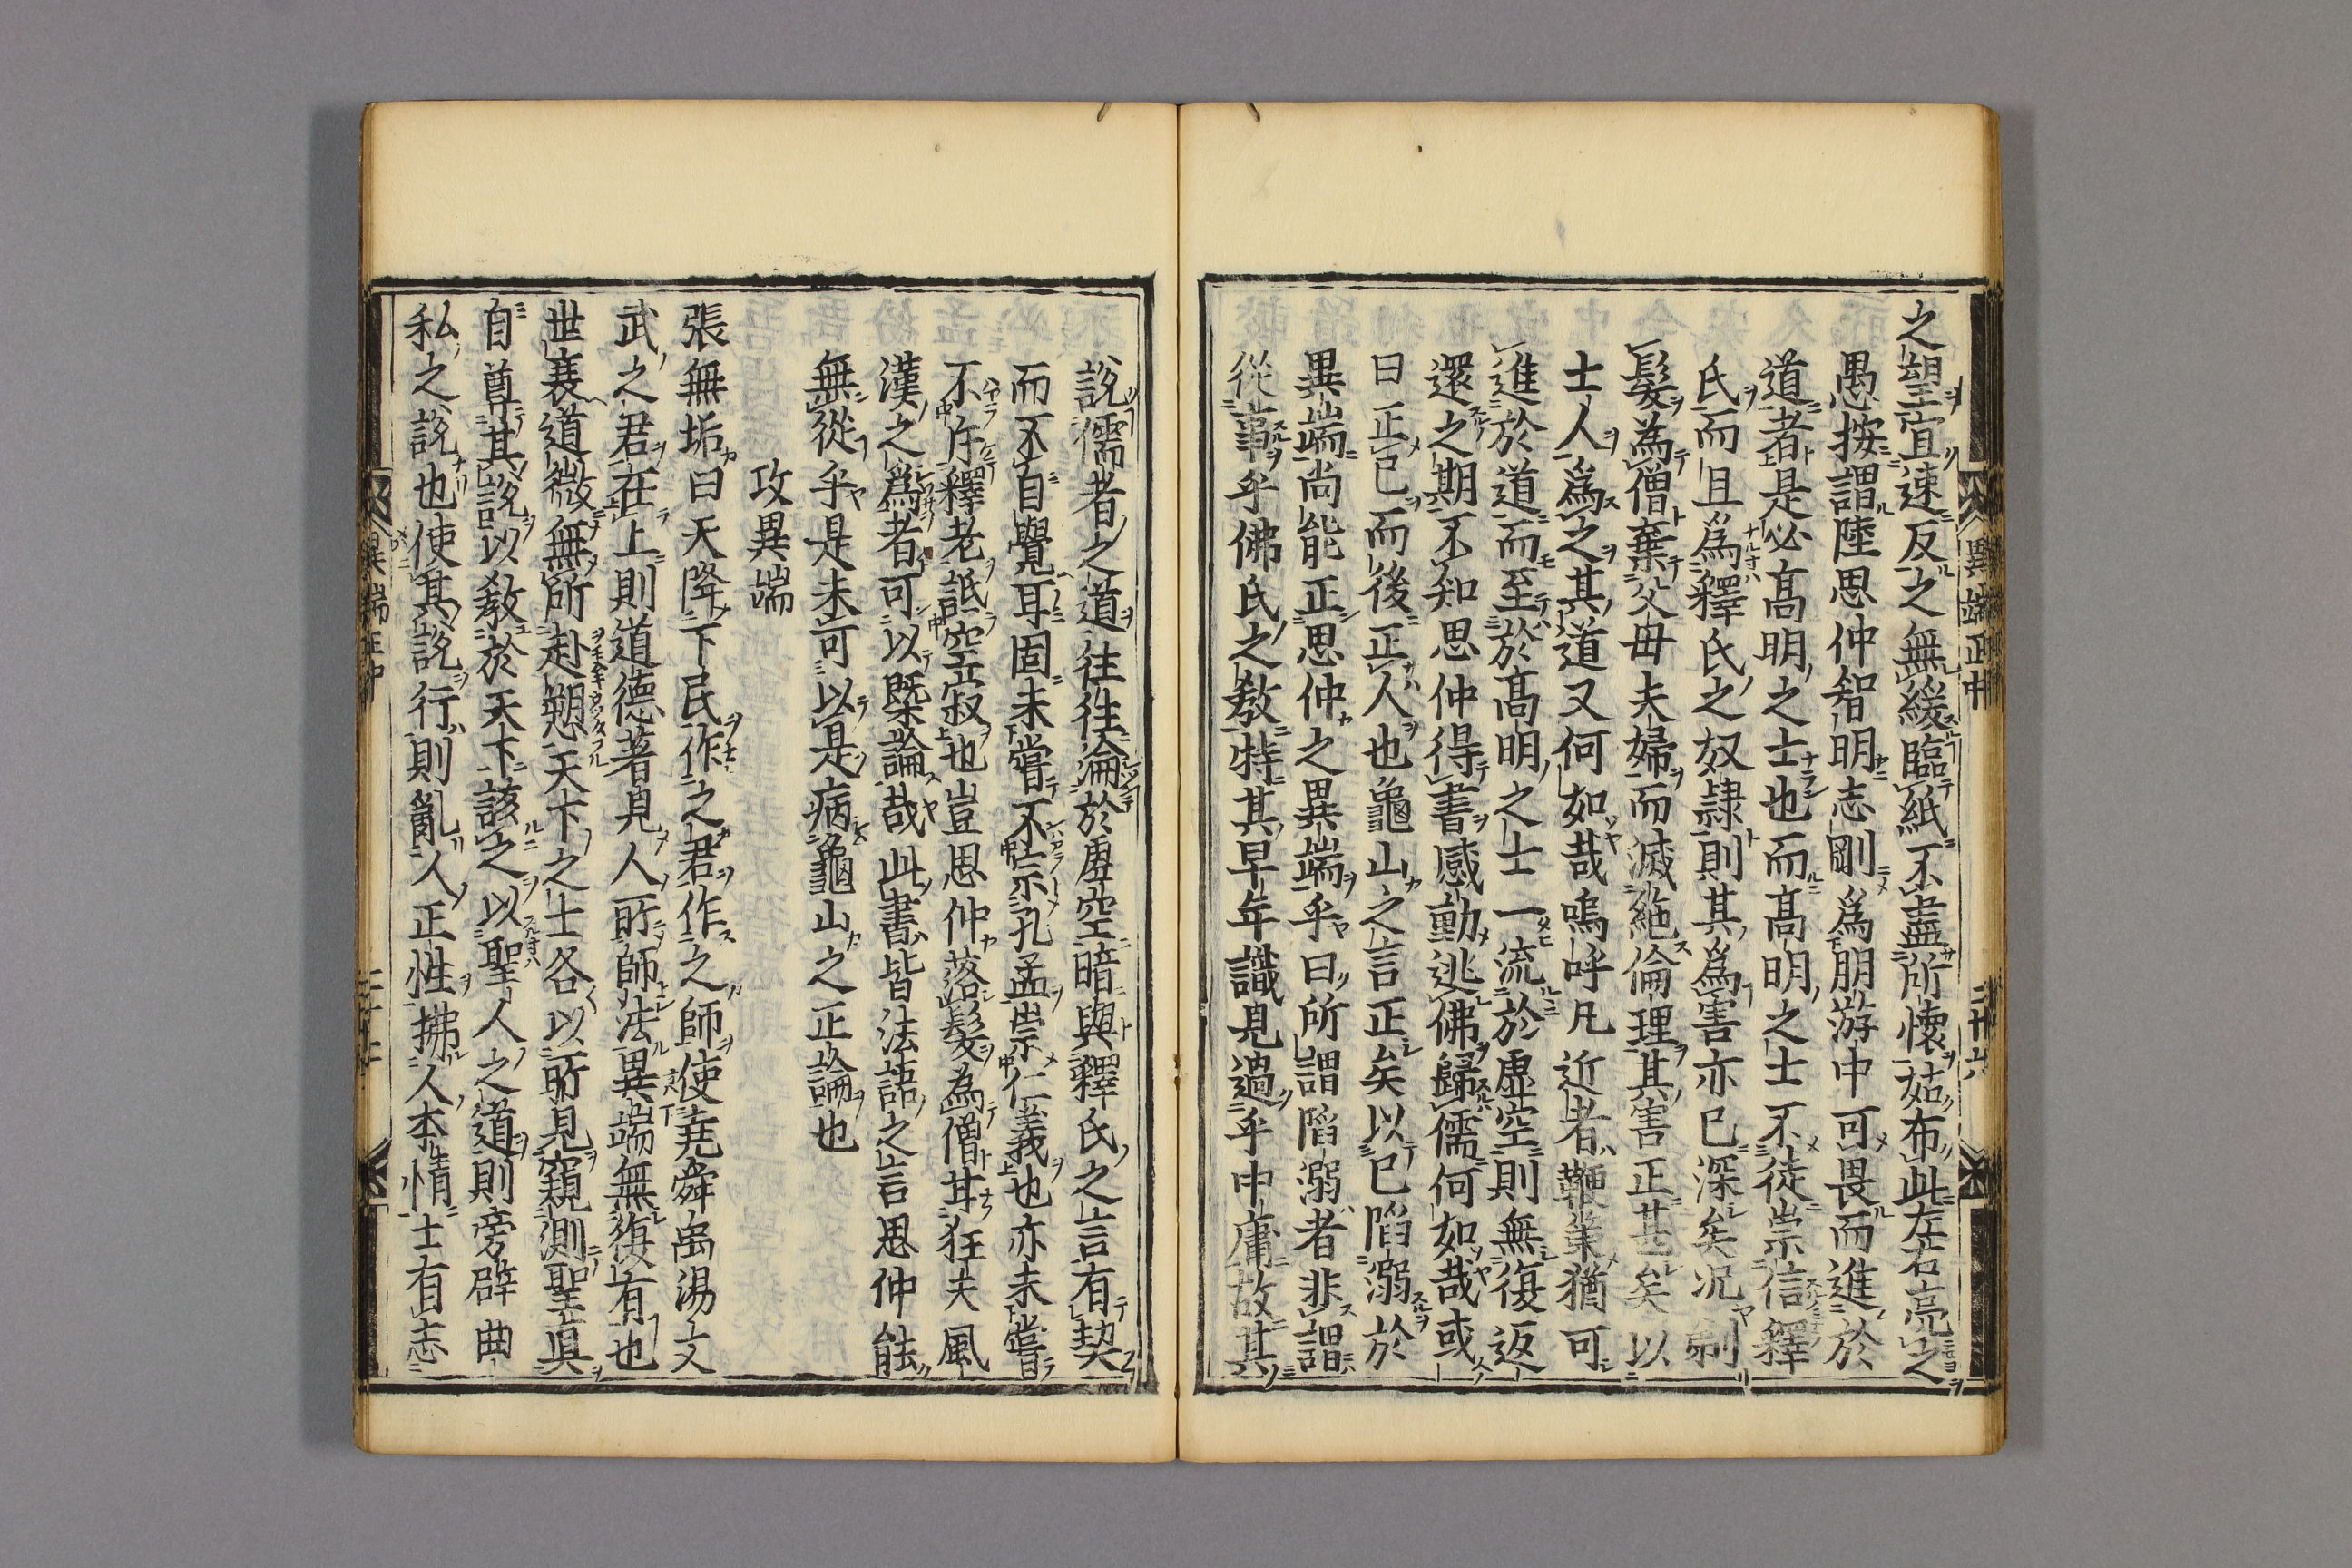 之望宜速反之無緩臨紙不盡所懷姑布此左右亮之
愚按謂陸思仲智明志剛爲朋游中可畏而進於
道者是必高明之士也而高明之士不徒崇信釋
氏而且爲釋氏之奴隷則其爲害亦已深矣况剃
髮為僧棄父毋夫婦而滅絶倫理其害正甚矣以
士人爲之其道又何如哉嗚呼凡近者鞭策猶可
進於道而至於高明之士一流於虛空則無復返
還之期不知思仲得書感動逃佛歸儒何如哉或
曰正已而後正人也龜山之言正矣以已陷溺於
異端尚能正思仲之異端乎曰所謂陷溺者非謂
從事乎佛氏之敎特其早年識見過乎中庸故其
異端正中
二十六
說儒者之道往往淪於虛空暗與釋氏之言有契
而不自覺耳固未嘗不宗孔孟崇仁義也亦未嘗
不斥釋老詆空寂也豈思仲落髮為僧甘狂夫風
漢之爲者可以槩論哉此書皆法語之言思仲能
無從乎是未可以是病龜山之正論也
攻異端
張無垢曰天降下民作之君作之師使堯舜禹湯文
武之君在上則道德著見人所師法異端無復有也
世衰道微無所赴愬天下之士各以所見窺測聖眞
自尊其說以敎於天下該之以聖人之道則旁辟曲
私之說也使其說行則亂人正性拂人本情士有志
異端正中